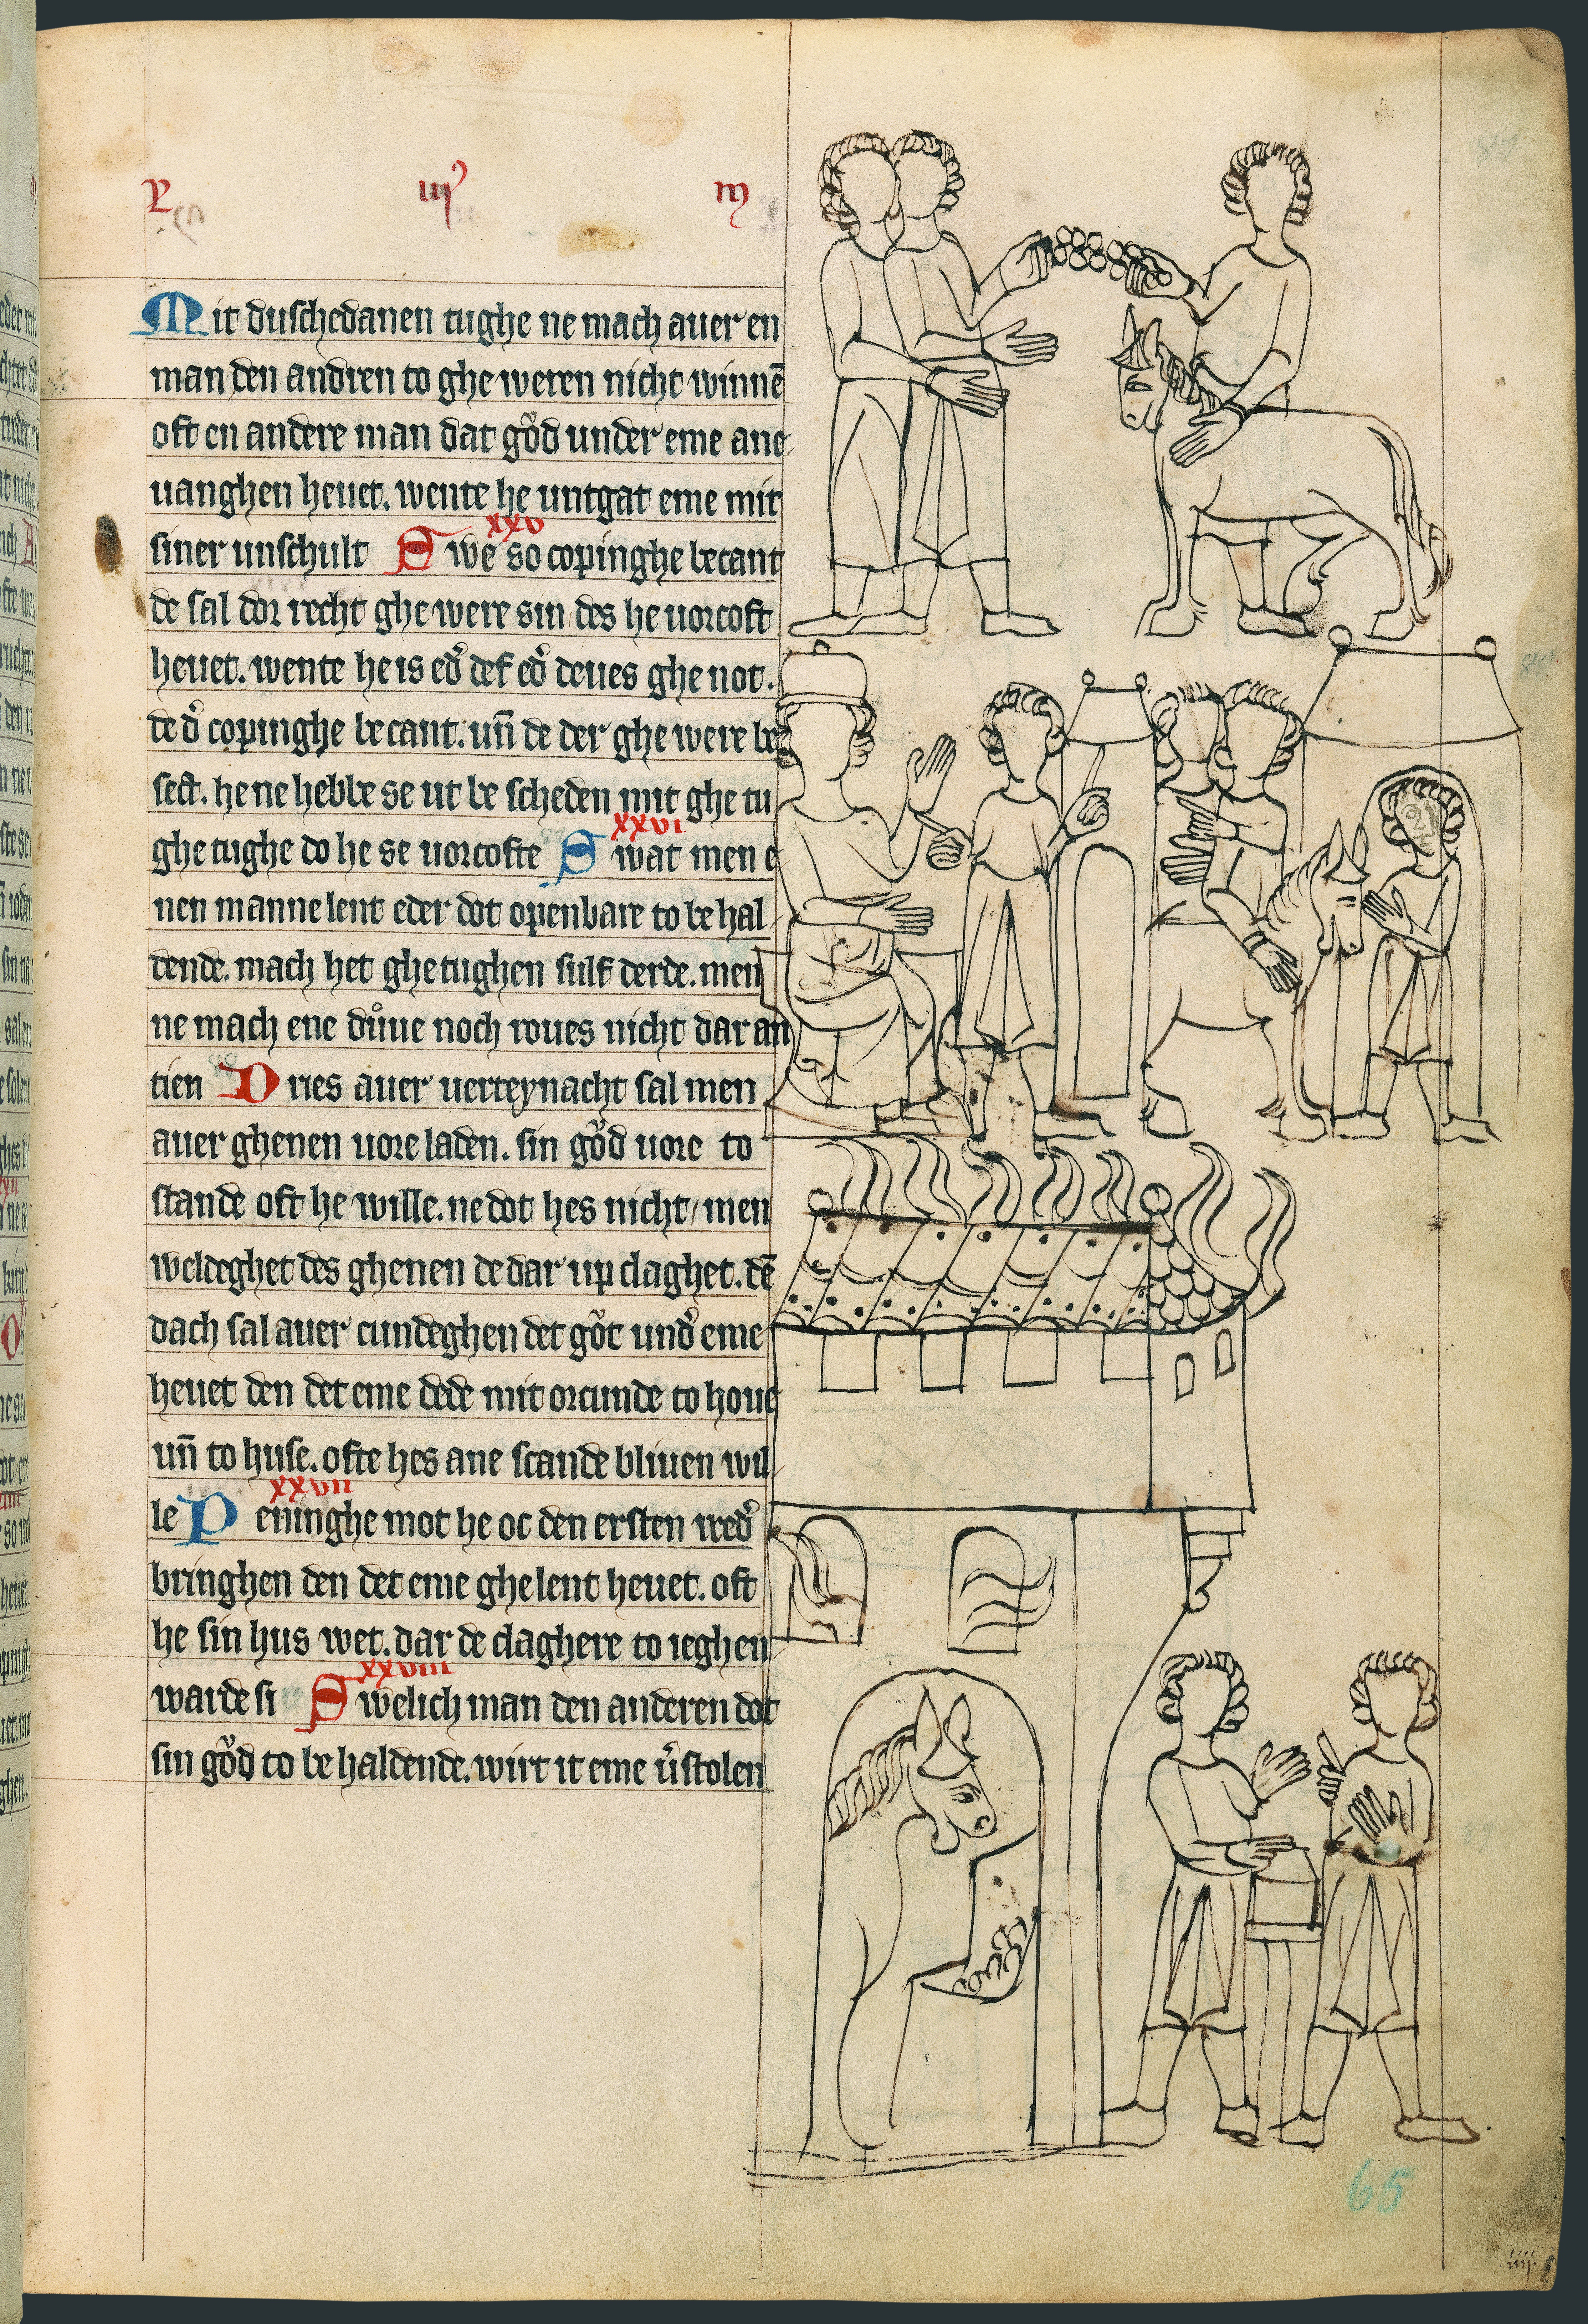 P. iij m
Mit dusschedanen tughe ne mach auer en
man den andren to ghe weren nicht winnē
oft en andere man dat gŏd under eme ane
uanghen heuet. wente he untgat eme mit
siner unschult Swe so copinghe becant
xxv
de sal dor recht ghe were sin des he uorcoft
heuet. wente he is ed' def ed' deues ghe not.
de d' copinghe be cant. uñ de der ghe were be
sect. he ne hebbe se ut be scheden mit ghe tu
ghe tughe do he se uorcofte Swat men e
xxvi
nen manne lent eder dot openbare to be hal
dende. mach het ghe tughen sulf derde. men
ne mach ene důue noch roues nicht dar an
tien Dries auer uerteynacht sal men
auer ghenen uore laden. sin gŏd uore to
stande oft he wille. ne dot hes nicht/ men
weldeghet des ghenen de dar up claghet. dē
dach sal auer cundeghen det gŏt und' eme
heuet den det eme dede mit orcunde to houe
uñ to huse. ofte hes ane scande bliuen wil
le Peninghe mot he oc den ersten wed'
xxvii
bringhen den det eme ghe lent heuet. oft
he sin hus wet. dar de claghere to ieghen
warde si Swelich man den anderen dot
xxviii
sin gŏd to be haldende. wirt it eme v'stolen
87
88
89
65
iiij